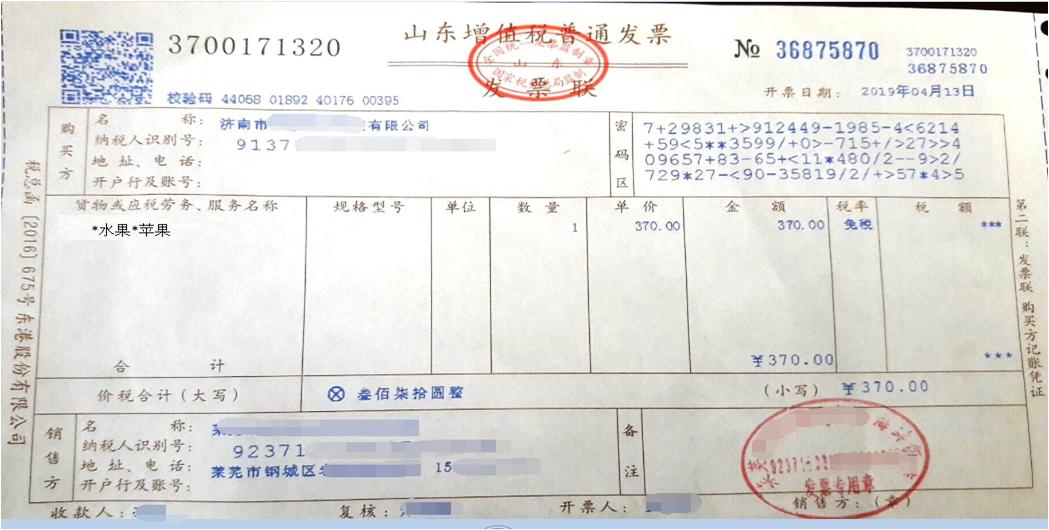 3700171320
山东增值税普通发票
发票联
全国统一发票监制章
山东
国家税务总局监制
№ 36875870
3700171320
36875870
校验码 44068 01892 40176 00395
开票日期： 2019年04月13日
购买方
名称： 济南市 有限公司
纳税人识别号： 9137
地址、电话：
开户行及账号：
密码区
7+29831+>912449-1985-4<6214
+59<5**3599/+0>-715+/>27>>4
09657+83-65+<11*480/2--9>2/
729*27-<90-35819/2/+>57*4>5
货物或应税劳务、服务名称 规格型号 单位 数量 单价 金额 税率 税额
*水果*苹果 1 370.00 370.00 免税 ***
合计 ￥370.00 ***
价税合计（大写） ⊗ 叁佰柒拾圆整 （小写） ￥370.00
销售方
名称：
纳税人识别号： 92371
地址、电话： 莱芜市钢城区 15
开户行及账号：
备注
发票专用章
收款人： 复核： 开票人： 销售方：（章）
税总函〔2016〕675号 东港股份有限公司
第二联：发票联 购买方记账凭证